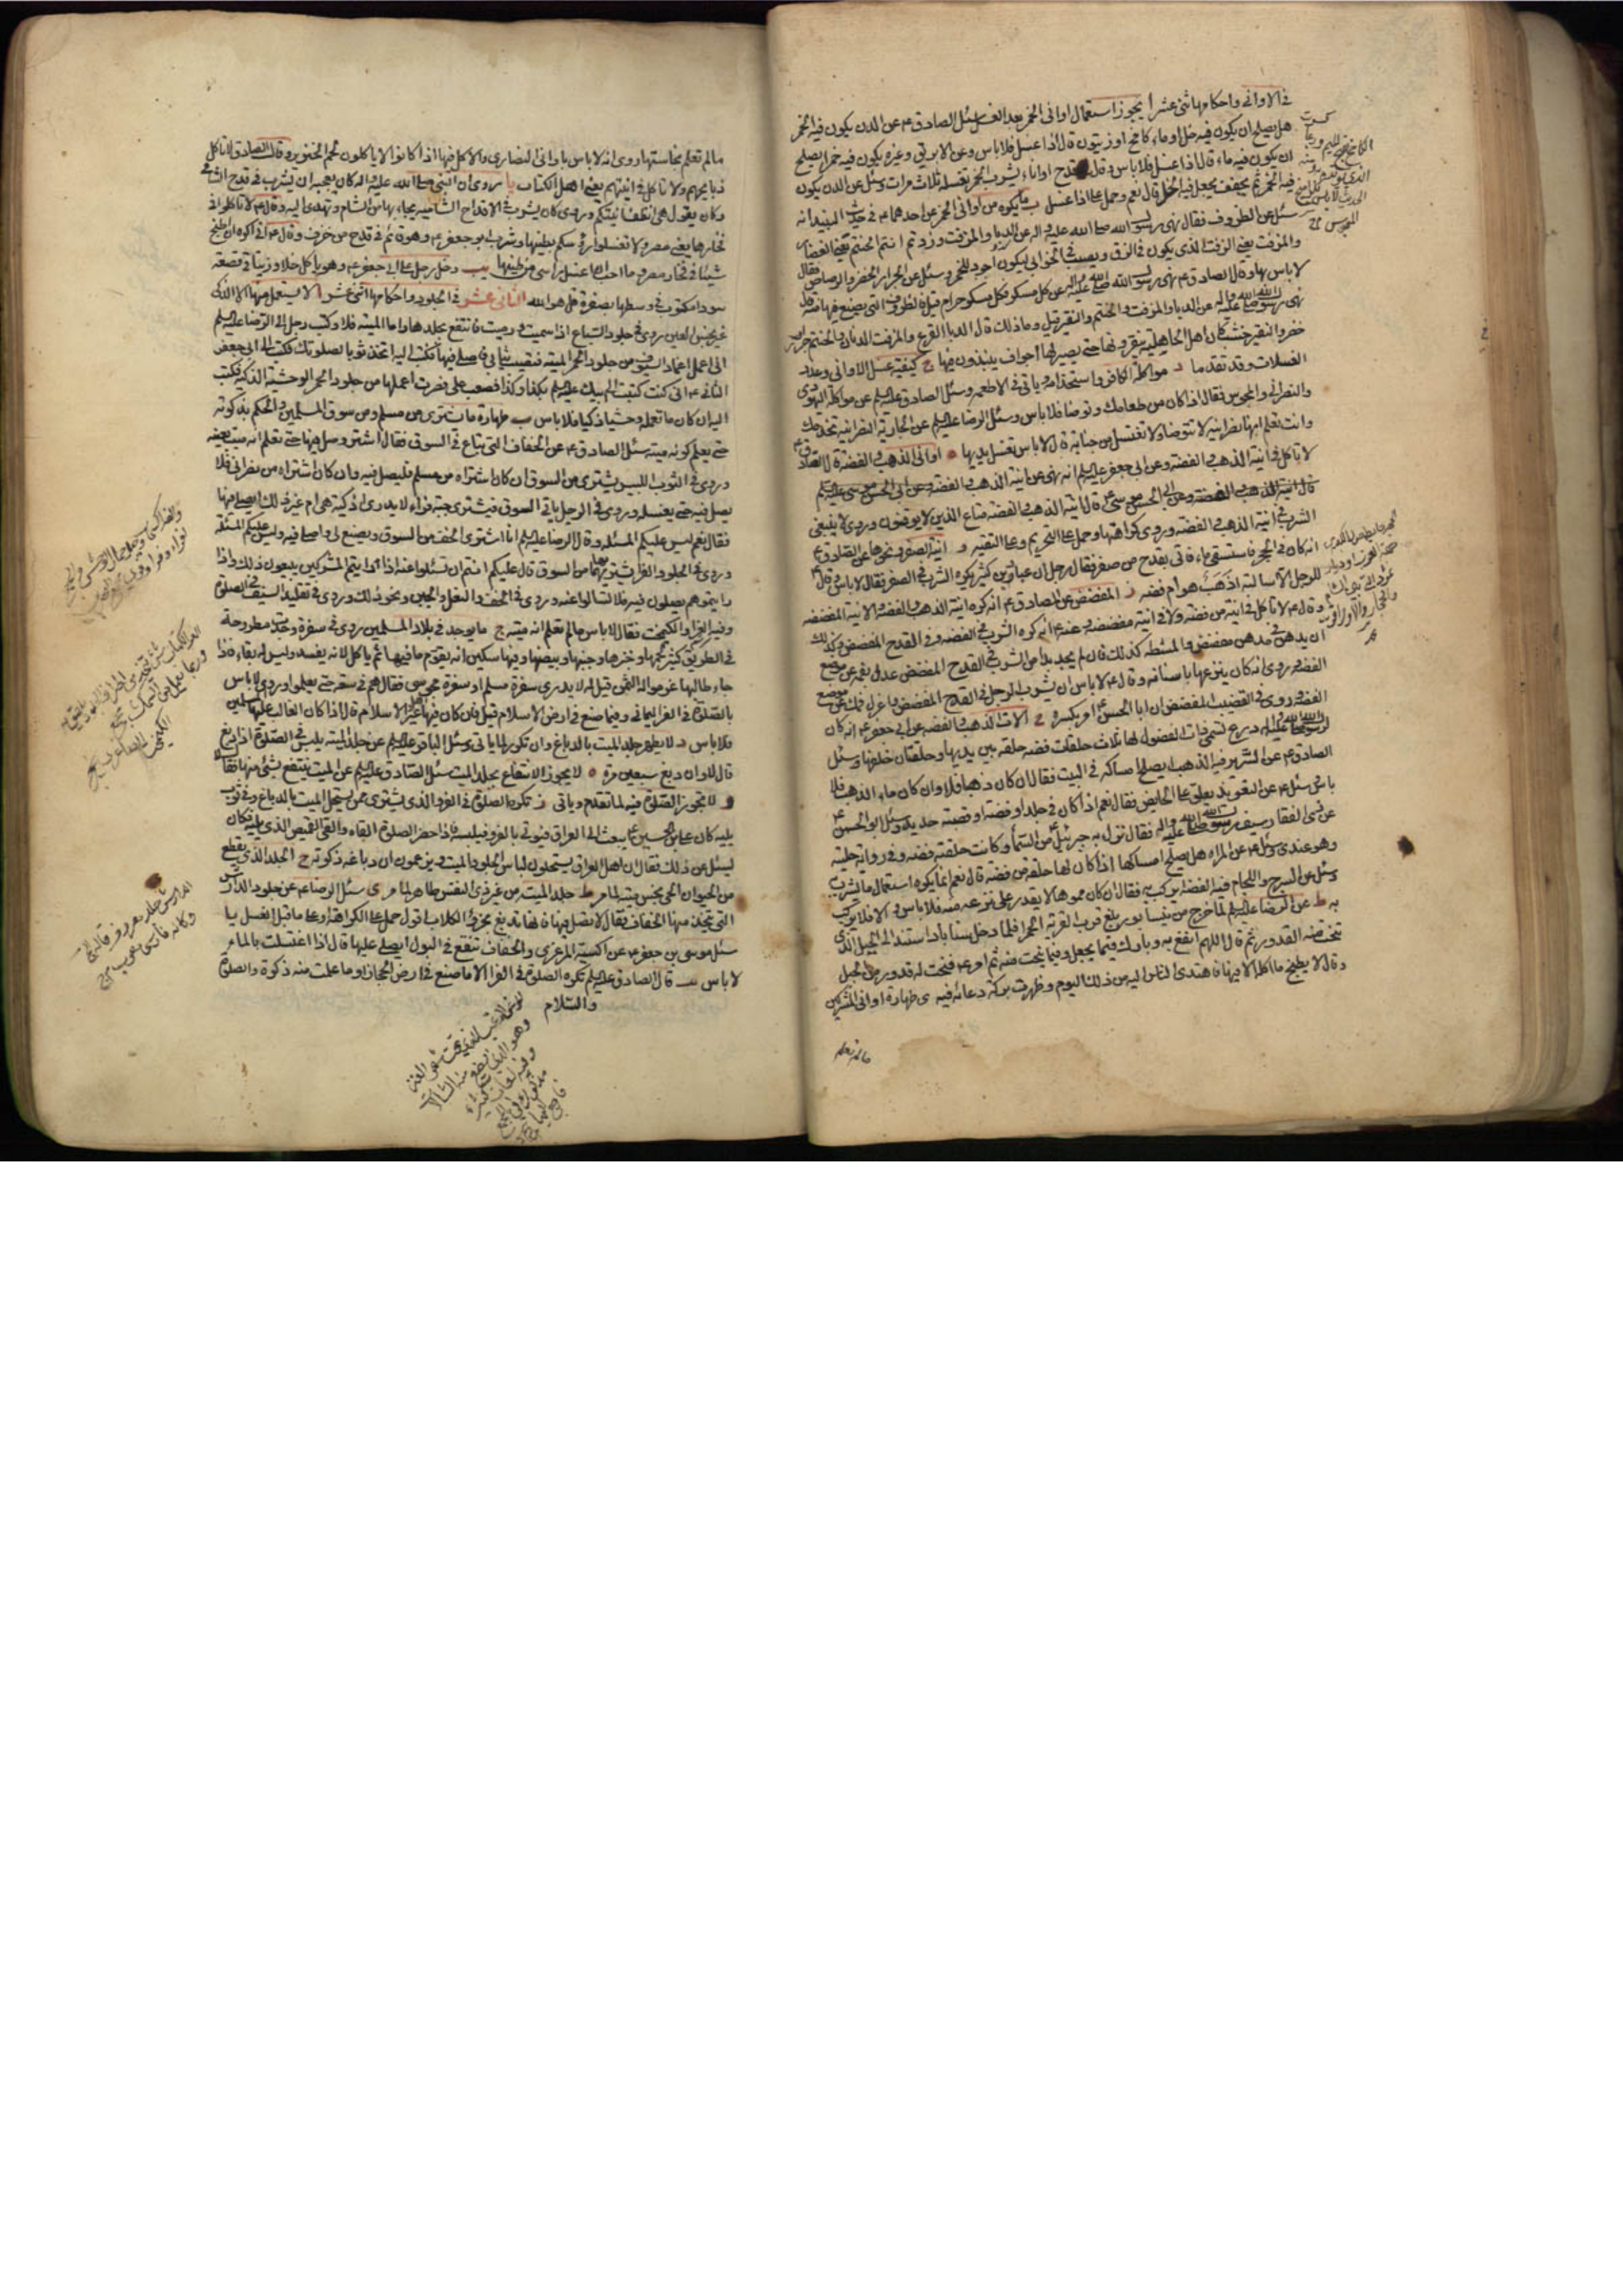 في الاواني واحكامها اثنى عشر ا يجوز استعمال اواني الخمر بعد الغسل سئل الصادق ع عن الدن يكون فيه الخمر
هل يصلح ان يكون فيه خل او ماء كامخ او زيتون قال اذا غسل فلا باس وعن الابريق وغيره يكون فيه خمر ايصلح
ان يكون فيه ماء قال اذا غسل فلا باس وقال قدح او اناء يشرب الخمر تغسله ثلاث مرات وسئل عن الدن يكون
فيه الخمر ثم يجفف يجعل فيه الخل قال نعم وحمل على اذا غسل ب ما يكره من اواني الخمر عن احدهما ع في حديث النبيذ انه
سئل عن الظروف فقال نهى رسول الله صلى الله عليه واله عن الدباء والمزفت وزدتم انتم الحنتم يعني الغضار
والمزفت يعني الزفت الذي يكون في الزق ويصب في الخوابي ليكون اجود للخمر وسئل عن الجرار الخضر والرصاص فقال
لا باس بها وقال الصادق ع نهى رسول الله صلى الله عليه واله عن كل مسكر فكل مسكر حرام قيل فالظروف التي يصنع فيها منه قال
نهى رسول الله صلى الله عليه واله عن الدباء والمزفت والحنتم والنقير قيل وما ذلك قال الدباء القرع والمزفت الدنان والحنتم جرار
خضر والنقير خشب كان اهل الجاهلية ينقرونها حتى يصير لها اجواف ينبذون فيها ج كيفية غسل الاواني وعدد
الغسلات وقد تقدما د مواكلة الكافر واستخدامه وياتي في الاطعمة وسئل الصادق عليه السلام عن مواكلة اليهودي
والنصراني والمجوسي فقال اذا كان من طعامك وتوضا فلا باس وسئل الرضا عليه السلام عن الجارية النصرانية تخدمك
وانت تعلم انها نصرانية لا تتوضا ولا تغتسل من جنابة قال لا باس تغسل يديها ه اواني الذهب والفضة قال الصادق ع
لا تاكل في انية الذهب والفضة وعن ابي جعفر عليه السلام انه نهى عن انية الذهب والفضة وعن ابي الحسن موسى عليه السلام
قال انية الذهب والفضة متاع الذين لا يوقنون وروي لا ينبغي
الشرب في انية الذهب والفضة وروي كراهتها وحمل على التحريم وعلى التقية و انية الصفر ونحوها عن الصادق ع
انه كان في الحجر فاستسقى ماء فاتي بقدح من صفر فقال رجل ان عباد بن كثير يكره الشرب في الصفر فقال لا باس وقال
للرجل الا سالته اذهب هو ام فضة ز المفضض عن الصادق ع انه كره انية الذهب والفضة والانية المفضضة
وقال ع لا تاكل في انية من فضة ولا في انية مفضضة وعنه ع انه كره الشرب في الفضة وفي القدح المفضض وكذلك
ان يدهن في مدهن مفضض والمشطة كذلك فان لم يجد بدا من الشرب في القدح المفضض عدل بفمه عن موضع
الفضة وروي انه كان ينزعها باسنانه وقال ع لا باس ان يشرب الرجل في القدح المفضض واعزل فمك عن موضع
الفضة وروي في القضيب الملبس ان ابا الحسن ع امر بكسره ح الات الذهب والفضة عن ابي جعفر ع انه كان
لرسول الله صلى الله عليه واله درع تسمى ذات الفضول لها ثلاث حلقات فضة حلقة بين يديها وحلقتان خلفها وسئل
الصادق ع عن السرير فيه الذهب ايصلح امساكه في البيت فقال ان كان ذهبا فلا وان كان ماء الذهب فلا
باس سئل ع عن التعويذ يعلق على الحايض فقال نعم اذا كان في جلد او فضة او قصبة حديد وسئل ابو الحسن ع
عن ذي الفقار سيف رسول الله صلى الله عليه واله فقال نزل به جبرئيل من السماء وكانت حلقته فضة وفي رواية حليته
وهو عندي وسئل ع عن المراة هل يصلح امساكها اذا كان لها حلقة من فضة قال نعم انما يكره استعمال ما يشرب
به وسئل عن السرج واللجام فيه الفضة ايركب به فقال ان كان مموها لا يقدر على نزعه منه فلا باس والا فلا يركب
به ط عن الرضا عليه السلام لما خرج من نيسابور بلغ قرب القرية الحمراء فلما دخل سناباد استند الى الجبل الذي
تنحت منه القدور ثم قال اللهم انفع به وبارك فيما يجعل وفيما ينحت منه ثم امر ع فنحت له قدور من الجبل
وقال لا يطبخ ما اكله الا فيها فاهتدى الناس اليه من ذلك اليوم وظهرت بركة دعائه فيه ي طهارة اواني المشركين
ما لم تعلم
ما لم تعلم نجاستها روي انه لا باس باواني النصارى والاكل فيها اذا كانوا لا ياكلون لحم الخنزير وقال الصادق ع لا تاكل
ذبايحهم ولا تاكل في انيتهم يعني اهل الكتاب يا روي ان النبي صلى الله عليه واله كان يعجبه ان يشرب في قدح الشامي
وكان يقول هي انظف انيتكم وروي كان يشرب في الاقداح الشامية يجاء بها من الشام وتهدى اليه وقال ع لا تاكلوا في
فخارها يعني مصر ولا تغسلوا رؤسكم بطينها وشرب ابو جعفر ع وهو قائم في قدح من خزف وقال ع اني اكره ان اطبخ
شيئا في فخار مصر وما احب ان اغسل راسي من طينها يب ودخل رجل على ابي جعفر ع وهو ياكل خلا وزيتا في قصعة
سوداء مكتوب في وسطها بصفرة قل هو الله الثاني عشر في الجلود واحكامها اثنى عشر ا لا يستعمل منها الا الذكي
غير نجس العين روي في جلود السباع اذا سميت ورميت فانتفع بجلدها واما الميتة فلا وكتب رجل الى الرضا عليه السلام
اني اعمل اغماد السيوف من جلود الحمر الميتة فتصيب ثيابي فاصلي فيها فكتب اليه اتخذ ثوبا لصلوتك فكتب الى ابي جعفر
الثاني ع اني كنت كتبت الى ابيك عليه السلام بكذا وكذا فصعب علي فصرت اعملها من جلود الحمر الوحشية الذكية فكتب
اليه ان كان ما تعمل وحشيا ذكيا فلا باس ب طهارة ما يشترى من مسلم ومن سوق المسلمين والحكم بذكوته
حتى يعلم كونه ميتة سئل الصادق ع عن الخفاف التي تباع في السوق فقال اشتر وصل فيها حتى تعلم انه ميت بعينه
وروي في الثوب اللبيس يشترى من السوق ان كان اشتراه من مسلم فليصل فيه وان كان اشتراه من نصراني فلا
يصل فيه حتى يغسله وروي في الرجل ياتي السوق فيشتري جبة فراء لا يدري اذكية هي ام غير ذلك ايصلي فيها
فقال نعم ليس عليكم المسئلة وقال الرضا عليه السلام انا اشتري الخف من السوق ويصنع لي واصلي فيه وليس عليكم المسئلة
وروي في الجلود الفراء يشتريها من السوق قال عليكم انتم ان تسئلوا عنه اذا رايتم المشركين يبيعون ذلك واذا
رايتموهم يصلون فيه فلا تسالوا عنه وروي في الخف والنعل والجبن ونحو ذلك وروي في تقليد السيف في الصلوة
وفيه الفراء والكيمخت فقال لا باس ما لم تعلم انه ميتة ج ما يوجد في بلاد المسلمين روي في سفرة وجدت مطروحة
في الطريق كثير لحمها وخبزها وجبنها وبيضها وفيها سكين انه يقوم ما فيها ثم ياكل لانه يفسد وليس له بقاء فاذا
جاء طالبها غرموا له الثمن قيل له لا يدرى سفرة مسلم او سفرة مجوسي فقال هم في سعة حتى يعلموا وروي لا باس
بالصلوة في الفراء اليماني وفيما صنع في ارض الاسلام قيل فان كان فيها غير اهل الاسلام قال اذا كان الغالب عليها المسلمين
فلا باس د لا يطهر جلد الميت بالدباغ وان تكرر لما ياتي وسئل الباقر عليه السلام عن جلد الميتة يلبس في الصلوة اذا دبغ
قال لا وان دبغ سبعين مرة ه لا يجوز الانتفاع بجلد الميت سئل الصادق عليه السلام عن الميت ينتفع بشئ منها فقال لا
و لا تجوز الصلوة فيه لما تقدم وياتي ز تكره الصلوة في الفرو الذي يشترى ممن يستحل الميت بالدباغ وفي ثوب
يليه كان علي بن الحسين ع يبعث الى العراق فيؤتى بالفرو فيلبسه فاذا حضر الصلوة القاه والقى القميص الذي يليه فكان
يسئل عن ذلك فقال ان اهل العراق يستحلون لباس الجلود الميت ويزعمون ان دباغه ذكوته ح الجلد الذي يقطع
من الحيوان الحي نجس ميتة لما مر ط جلد الميت من غير ذي النفس طاهر لما مر ي سئل الرضا ع عن جلود الدارش
التي تتخذ منها الخفاف فقال لا تصل فيها فانها تدبغ بخرؤ الكلاب اقول حمل على الكراهة او على ما قبل الغسل يا
سئل موسى بن جعفر ع عن اكسية المرعزي والخفاف تنقع في البول ايصلى عليها قال اذا اغسلت بالماء
لا باس يب قال الصادق عليه السلام تكره الصلوة في الفراء الا ما صنع في ارض الحجاز او ما علمت منه ذكوة والصلوة
والسلام